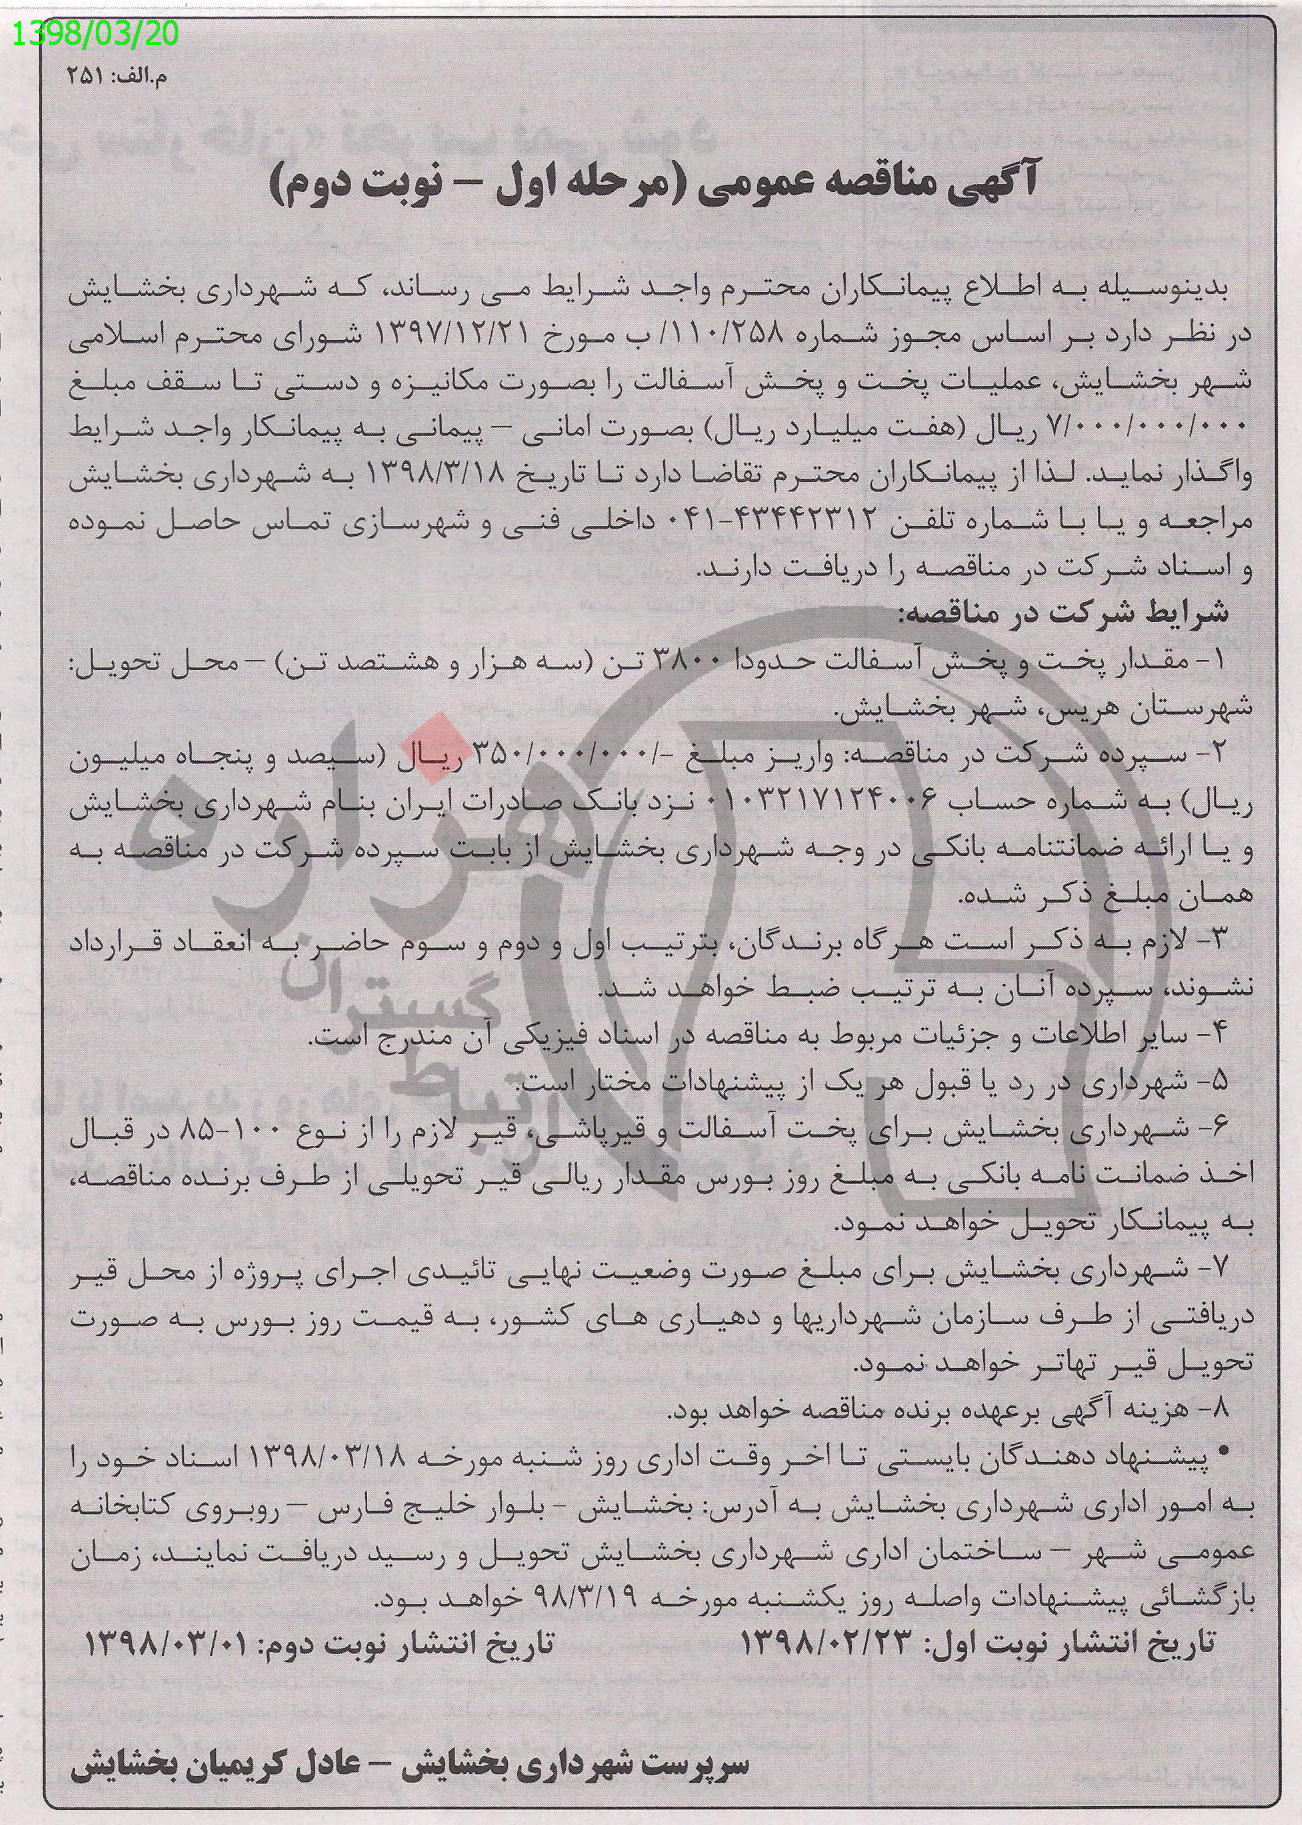 1398/03/20
م.الف: ۲۵۱
آگهی مناقصه عمومی (مرحله اول – نوبت دوم)
بدینوسیله به اطلاع پیمانکاران محترم واجد شرایط می رساند، که شهرداری بخشایش
در نظر دارد بر اساس مجوز شماره ۱۱۰/۲۵۸/ ب مورخ ۱۳۹۷/۱۲/۲۱ شورای محترم اسلامی
شهر بخشایش، عملیات پخت و پخش آسفالت را بصورت مکانیزه و دستی تا سقف مبلغ
۷/۰۰۰/۰۰۰/۰۰۰ ریال (هفت میلیارد ریال) بصورت امانی – پیمانی به پیمانکار واجد شرایط
واگذار نماید. لذا از پیمانکاران محترم تقاضا دارد تا تاریخ ۱۳۹۸/۳/۱۸ به شهرداری بخشایش
مراجعه و یا با شماره تلفن ۴۳۴۴۲۳۱۲-۰۴۱ داخلی فنی و شهرسازی تماس حاصل نموده
و اسناد شرکت در مناقصه را دریافت دارند.
شرایط شرکت در مناقصه:
۱- مقدار پخت و پخش آسفالت حدودا ۳۸۰۰ تن (سه هزار و هشتصد تن) – محل تحویل:
شهرستان هریس، شهر بخشایش.
۲- سپرده شرکت در مناقصه: واریز مبلغ -/۳۵۰/۰۰۰/۰۰۰ ریال (سیصد و پنجاه میلیون
ریال) به شماره حساب ۰۱۰۳۲۱۷۱۲۴۰۰۶ نزد بانک صادرات ایران بنام شهرداری بخشایش
و یا ارائه ضمانتنامه بانکی در وجه شهرداری بخشایش از بابت سپرده شرکت در مناقصه به
همان مبلغ ذکر شده.
۳- لازم به ذکر است هرگاه برندگان، بترتیب اول و دوم و سوم حاضر به انعقاد قرارداد
نشوند، سپرده آنان به ترتیب ضبط خواهد شد.
۴- سایر اطلاعات و جزئیات مربوط به مناقصه در اسناد فیزیکی آن مندرج است.
۵- شهرداری در رد یا قبول هر یک از پیشنهادات مختار است.
۶- شهرداری بخشایش برای پخت آسفالت و قیرپاشی، قیر لازم را از نوع ۱۰۰-۸۵ در قبال
اخذ ضمانت نامه بانکی به مبلغ روز بورس مقدار ریالی قیر تحویلی از طرف برنده مناقصه،
به پیمانکار تحویل خواهد نمود.
۷- شهرداری بخشایش برای مبلغ صورت وضعیت نهایی تائیدی اجرای پروژه از محل قیر
دریافتی از طرف سازمان شهرداریها و دهیاری های کشور، به قیمت روز بورس به صورت
تحویل قیر تهاتر خواهد نمود.
۸- هزینه آگهی برعهده برنده مناقصه خواهد بود.
• پیشنهاد دهندگان بایستی تا اخر وقت اداری روز شنبه مورخه ۱۳۹۸/۰۳/۱۸ اسناد خود را
به امور اداری شهرداری بخشایش به آدرس: بخشایش - بلوار خلیج فارس – روبروی کتابخانه
عمومی شهر – ساختمان اداری شهرداری بخشایش تحویل و رسید دریافت نمایند، زمان
بازگشائی پیشنهادات واصله روز یکشنبه مورخه ۹۸/۳/۱۹ خواهد بود.
تاریخ انتشار نوبت اول: ۱۳۹۸/۰۲/۲۳ تاریخ انتشار نوبت دوم: ۱۳۹۸/۰۳/۰۱
سرپرست شهرداری بخشایش – عادل کریمیان بخشایش
هزاره
گستران
ارتباط